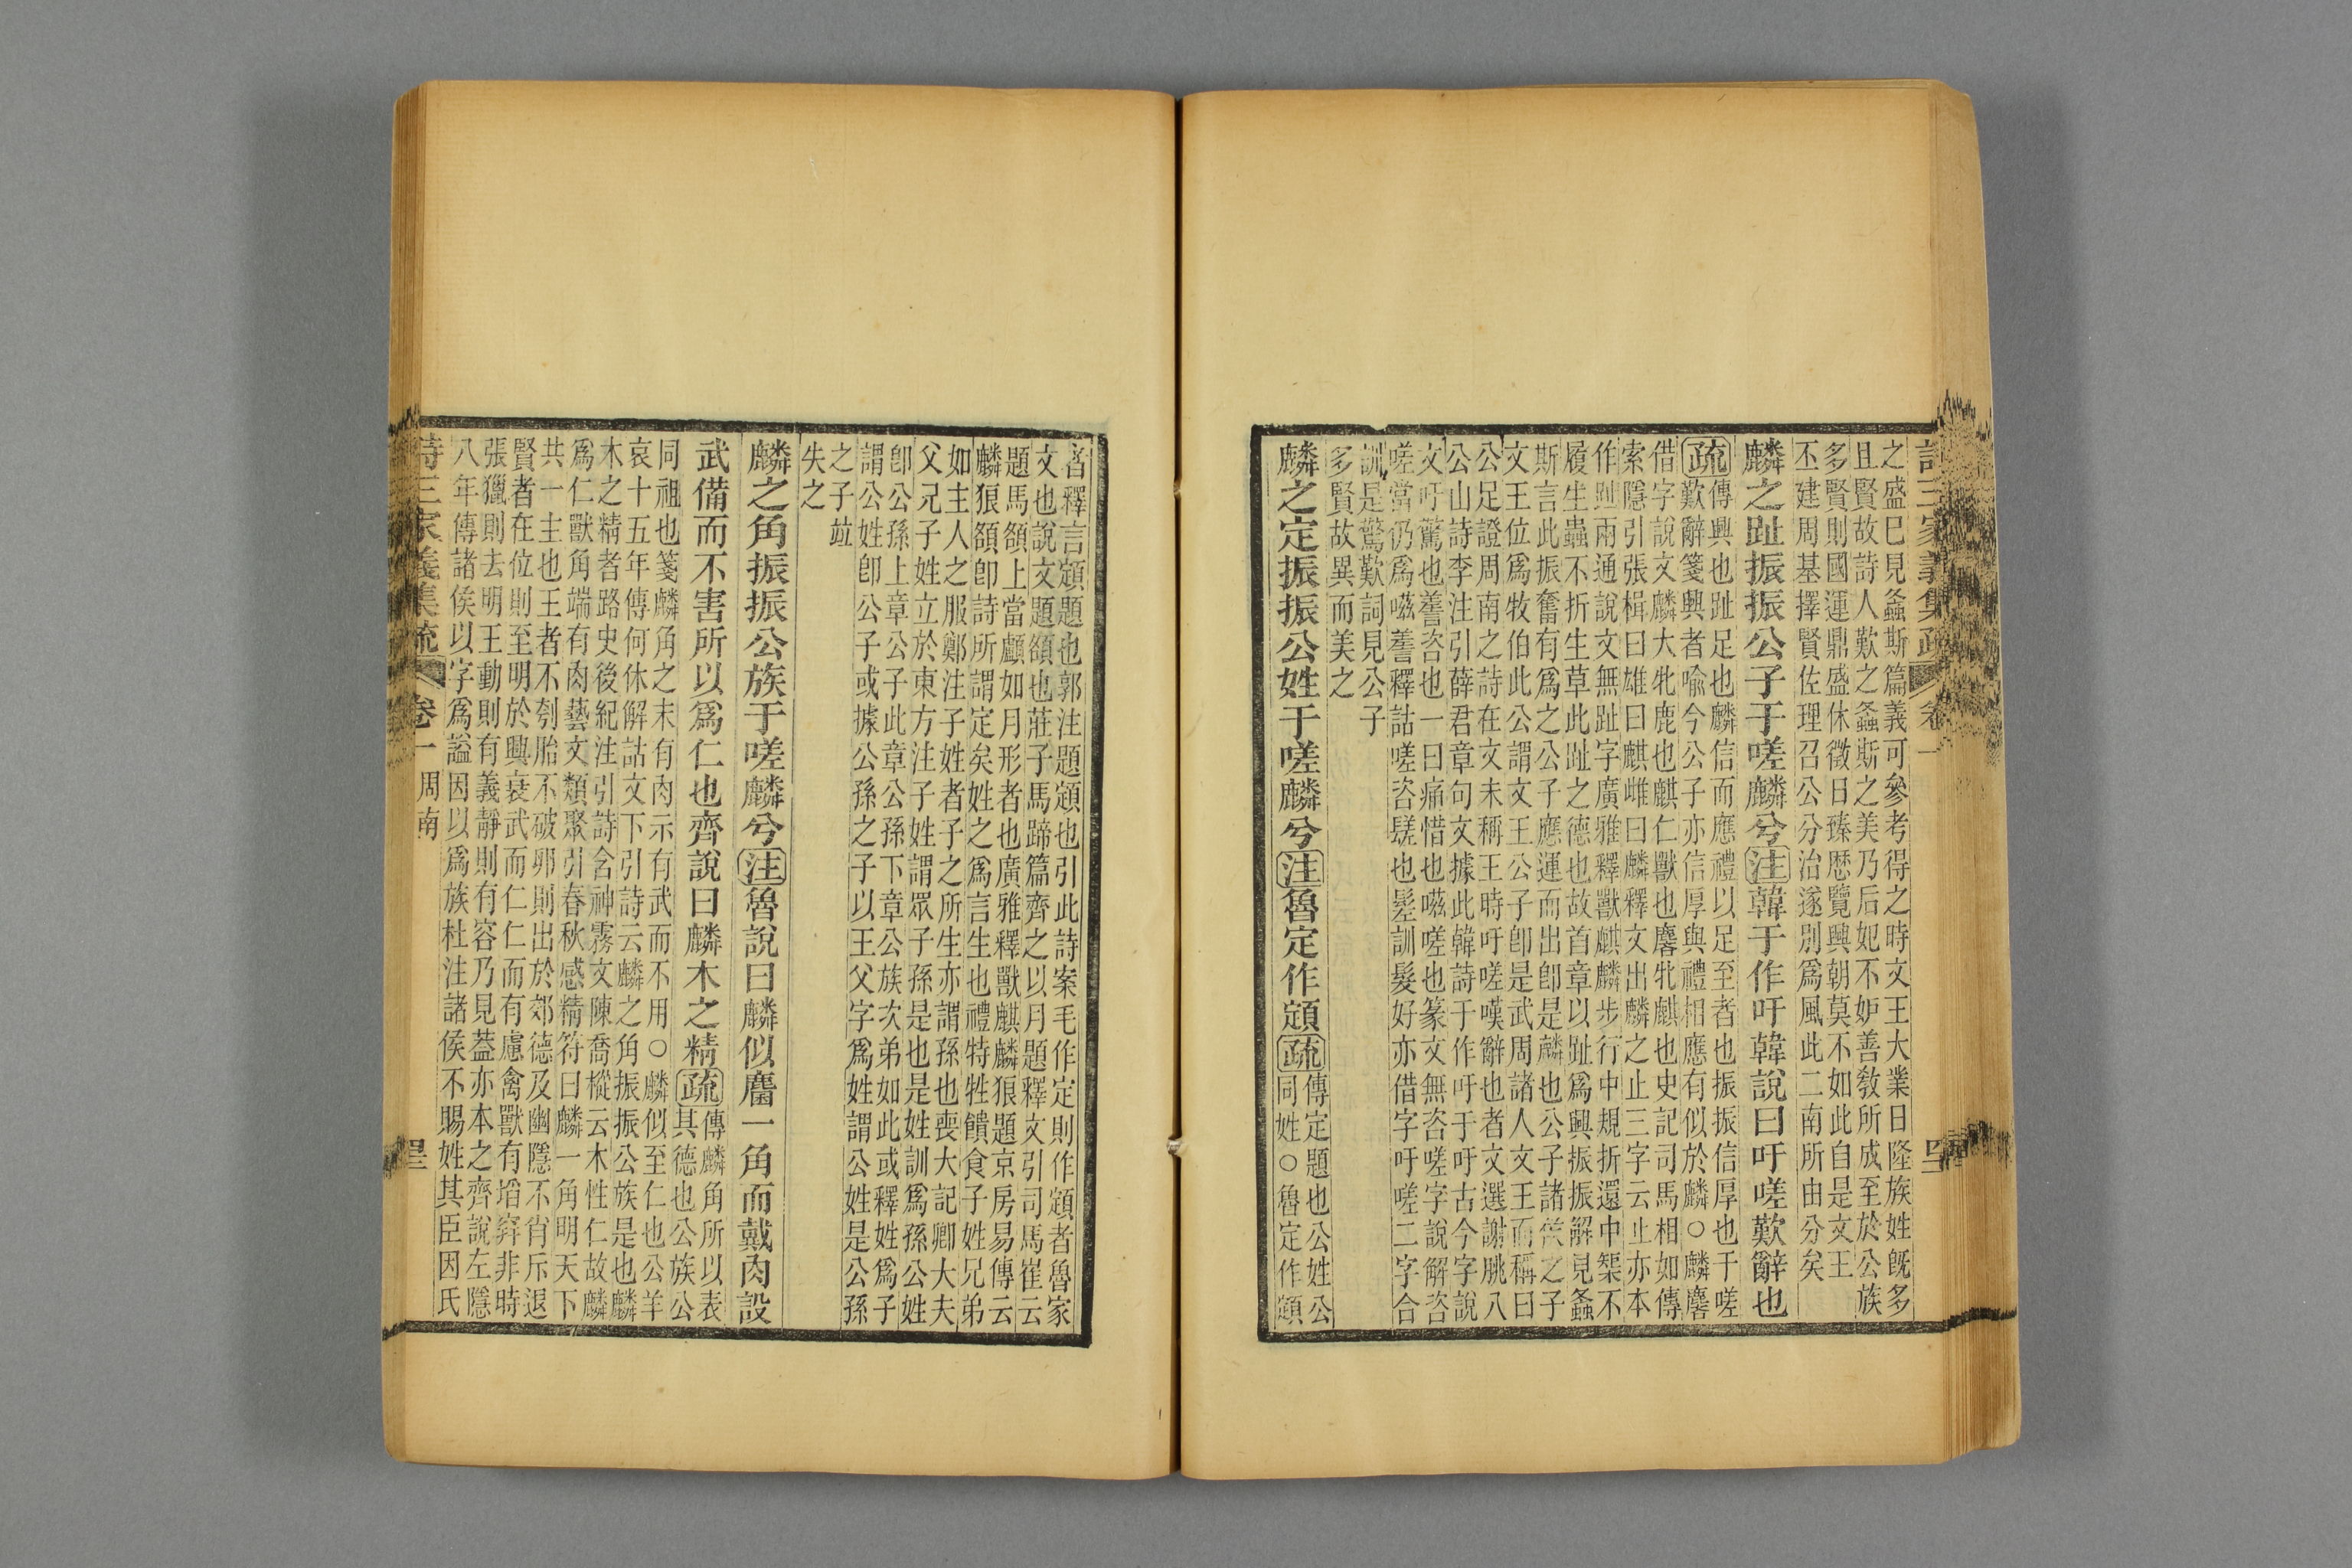 詩三家義集疏 卷一
之盛已見螽斯篇義可參考得之時文王大業日隆族姓旣多
且賢故詩人歎之螽斯之美乃后妃不妒善敎所成至於公族
多賢則國運鼎盛休徵日臻歷覽興朝莫不如此自是文王
丕建周基擇賢佐理召公分治遂別爲風此二南所由分矣
麟之趾振振公子于嗟麟兮注韓于作吁韓說曰吁嗟歎辭也
疏傳興也趾足也麟信而應禮以足至者也振振信厚也于嗟
歎辭箋興者喻今公子亦信厚與禮相應有似於麟○麟麐
借字說文麟大牝鹿也麒仁獸也麐牝麒也史記司馬相如傳
索隱引張楫曰雄曰麒雌曰麟釋文出麟之止三字云止亦本
作趾兩通說文無趾字廣雅釋獸麒麟步行中規折還中榘不
履生蟲不折生草此趾之德也故首章以趾爲興振振解見螽
斯言此振奮有爲之公子應運而出卽是麟也公子諸侯之子
文王位爲牧伯此公謂文王公子卽是武周諸人文王而稱曰
公足證周南之詩在文未稱王時吁嗟嘆辭也者文選謝朓八
公山詩李注引薛君章句文據此韓詩于作吁于吁古今字說
文吁驚也䜅咨也一曰痛惜也嗞嗟也篆文無咨嗟字說解咨
嗟當仍爲嗞䜅釋詁嗟咨䰈也髿訓髮好亦借字吁嗟二字合
訓是驚歎詞見公子
多賢故異而美之
麟之定振振公姓于嗟麟兮注魯定作顁疏傳定題也公姓公
同姓○魯定作顁
者釋言顁題也郭注題顁也引此詩案毛作定則作顁者魯家
文也說文題頟也莊子馬蹄篇齊之以月題釋文引司馬崔云
題馬頟上當顱如月形者也廣雅釋獸麒麟狼題京房易傳云
麟狼頟卽詩所謂定矣姓之爲言生也禮特牲饋食子姓兄弟
如主人之服鄭注子姓者子之所生亦謂孫也喪大記卿大夫
父兄子姓立於東方注子姓謂眾子孫是也是姓訓爲孫公姓
卽公孫上章公子此章公孫下章公族次弟如此或釋姓爲子
謂公姓卽公子或據公孫之子以王父字爲姓謂公姓是公孫
之子竝
失之
麟之角振振公族于嗟麟兮注魯說曰麟似麕一角而戴肉設
武備而不害所以爲仁也齊說曰麟木之精疏傳麟角所以表
其德也公族公
同祖也箋麟角之末有肉示有武而不用○麟似至仁也公羊
哀十五年傳何休解詁文下引詩云麟之角振振公族是也麟
木之精者路史後紀注引詩含神霧文陳喬樅云木性仁故麟
爲仁獸角端有肉藝文類聚引春秋感精符曰麟一角明天下
共一主也王者不刳胎不破卵則出於郊德及幽隱不肖斥退
賢者在位則至明於興衰武而仁仁而有慮禽獸有埳穽非時
張獵則去明王動則有義靜則有容乃見葢亦本之齊說左隱
八年傳諸侯以字爲謚因以爲族杜注諸侯不賜姓其臣因氏
詩三家義集疏 卷一 周南